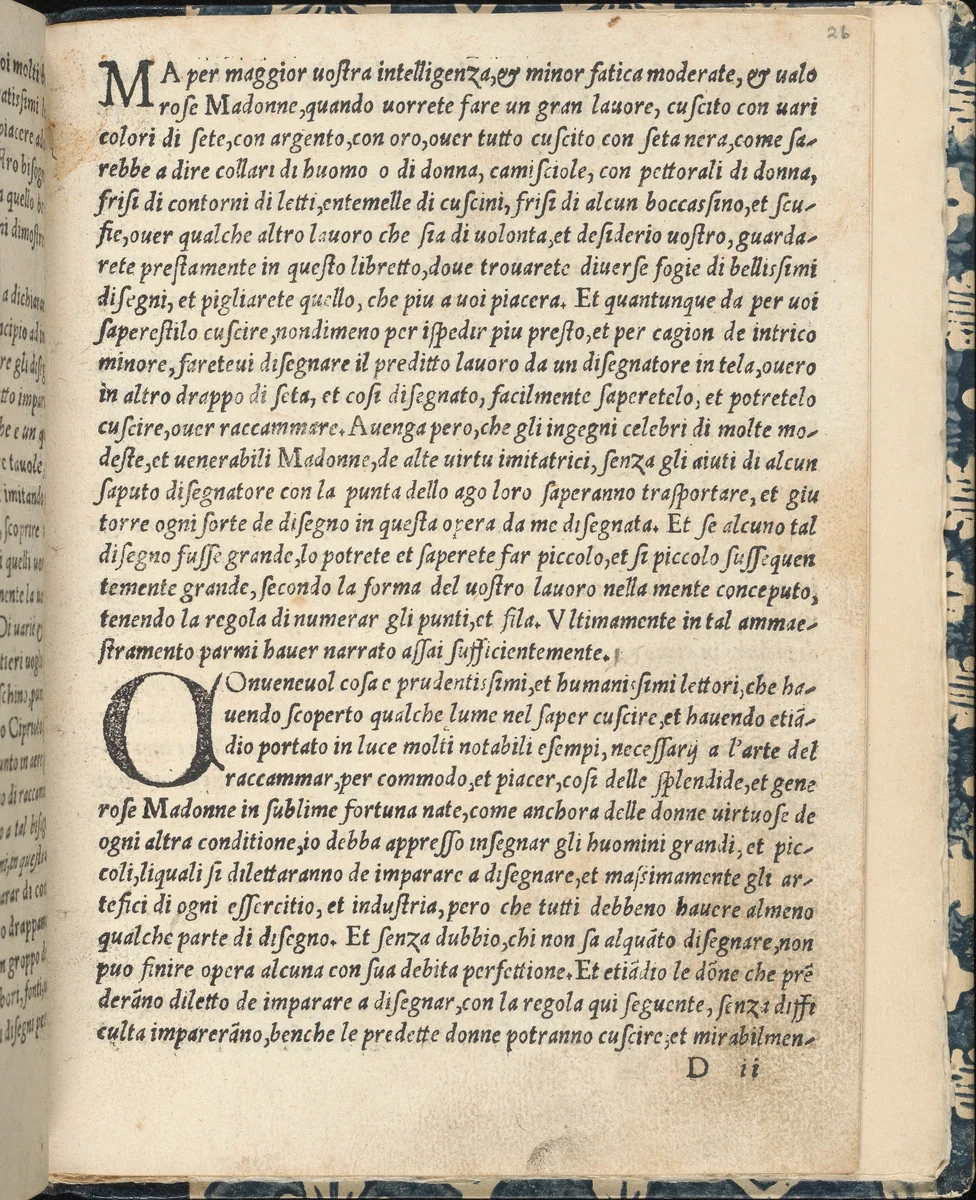 26
MA per maggior uoſtra intelligenza,& minor fatica moderate, & ualo
roſe Madonne,quando uorrete fare un gran lauore, cuſcito con uari
colori di ſete,con argento,con oro,ouer tutto cuſcito con ſeta nera,come ſa-
rebbe a dire collari di huomo o di donna, camiſciole, con pettorali di donna,
friſi di contorni di letti,entemelle di cuſcini, friſi di alcun boccaſſino,et ſcu-
fie,ouer qualche altro lauoro che ſia di uolonta,et deſiderio uoſtro, guarda-
rete preſtamente in queſto libretto,doue trouarete diuerſe fogie di belliſſimi
diſegni, et pigliarete quello, che piu a uoi piacera. Et quantunque da per uoi
ſapereſtilo cuſcire,nondimeno per iſpedir piu preſto,et per cagion de intrico
minore, fareteui diſegnare il preditto lauoro da un diſegnatore in tela,ouero
in altro drappo di ſeta, et coſi diſegnato, facilmente ſaperetelo, et potretelo
cuſcire,ouer raccammare. Auenga pero,che gli ingegni celebri di molte mo-
deſte,et uenerabili Madonne,de alte uirtu imitatrici, ſenza gli aiuti di alcun
ſaputo diſegnatore con la punta dello ago loro ſaperanno traſportare, et giu
torre ogni ſorte de diſegno in queſta opera da me diſegnata. Et ſe alcuno tal
diſegno fuſſe grande,lo potrete et ſaperete far piccolo,et ſi piccolo fuſſequen
temente grande, ſecondo la forma del uoſtro lauoro nella mente conceputo,
tenendo la regola di numerar gli punti,et fila. Vltimamente in tal ammae-
ſtramento parmi hauer narrato aſſai ſufficientemente.
COnueneuol coſa e prudentiſſimi,et humaniſſimi lettori,che ha-
uendo ſcoperto qualche lume nel ſaper cuſcire,et hauendo etiã-
dio portato in luce molti notabili eſempi, neceſſarij a l'arte del
raccammar,per commodo,et piacer,coſi delle ſplendide,et gene
roſe Madonne in ſublime fortuna nate,come anchora delle donne uirtuoſe de
ogni altra conditione,io debba appreſſo inſegnar gli huomini grandi, et pic-
coli,liquali ſi dilettaranno de imparare a diſegnare,et maſſimamente gli ar-
tefici di ogni eſſercitio, et induſtria, pero che tutti debbeno hauere almeno
qualche parte di diſegno. Et ſenza dubbio,chi non ſa alquãto diſegnare,non
puo finire opera alcuna con ſua debita perfettione. Et etiãdio le dõne che prẽ
derãno diletto de imparare a diſegnar,con la regola qui ſeguente, ſenza diffi
culta impareráno,benche le predette donne potranno cuſcire,et mirabilmen-
D ii